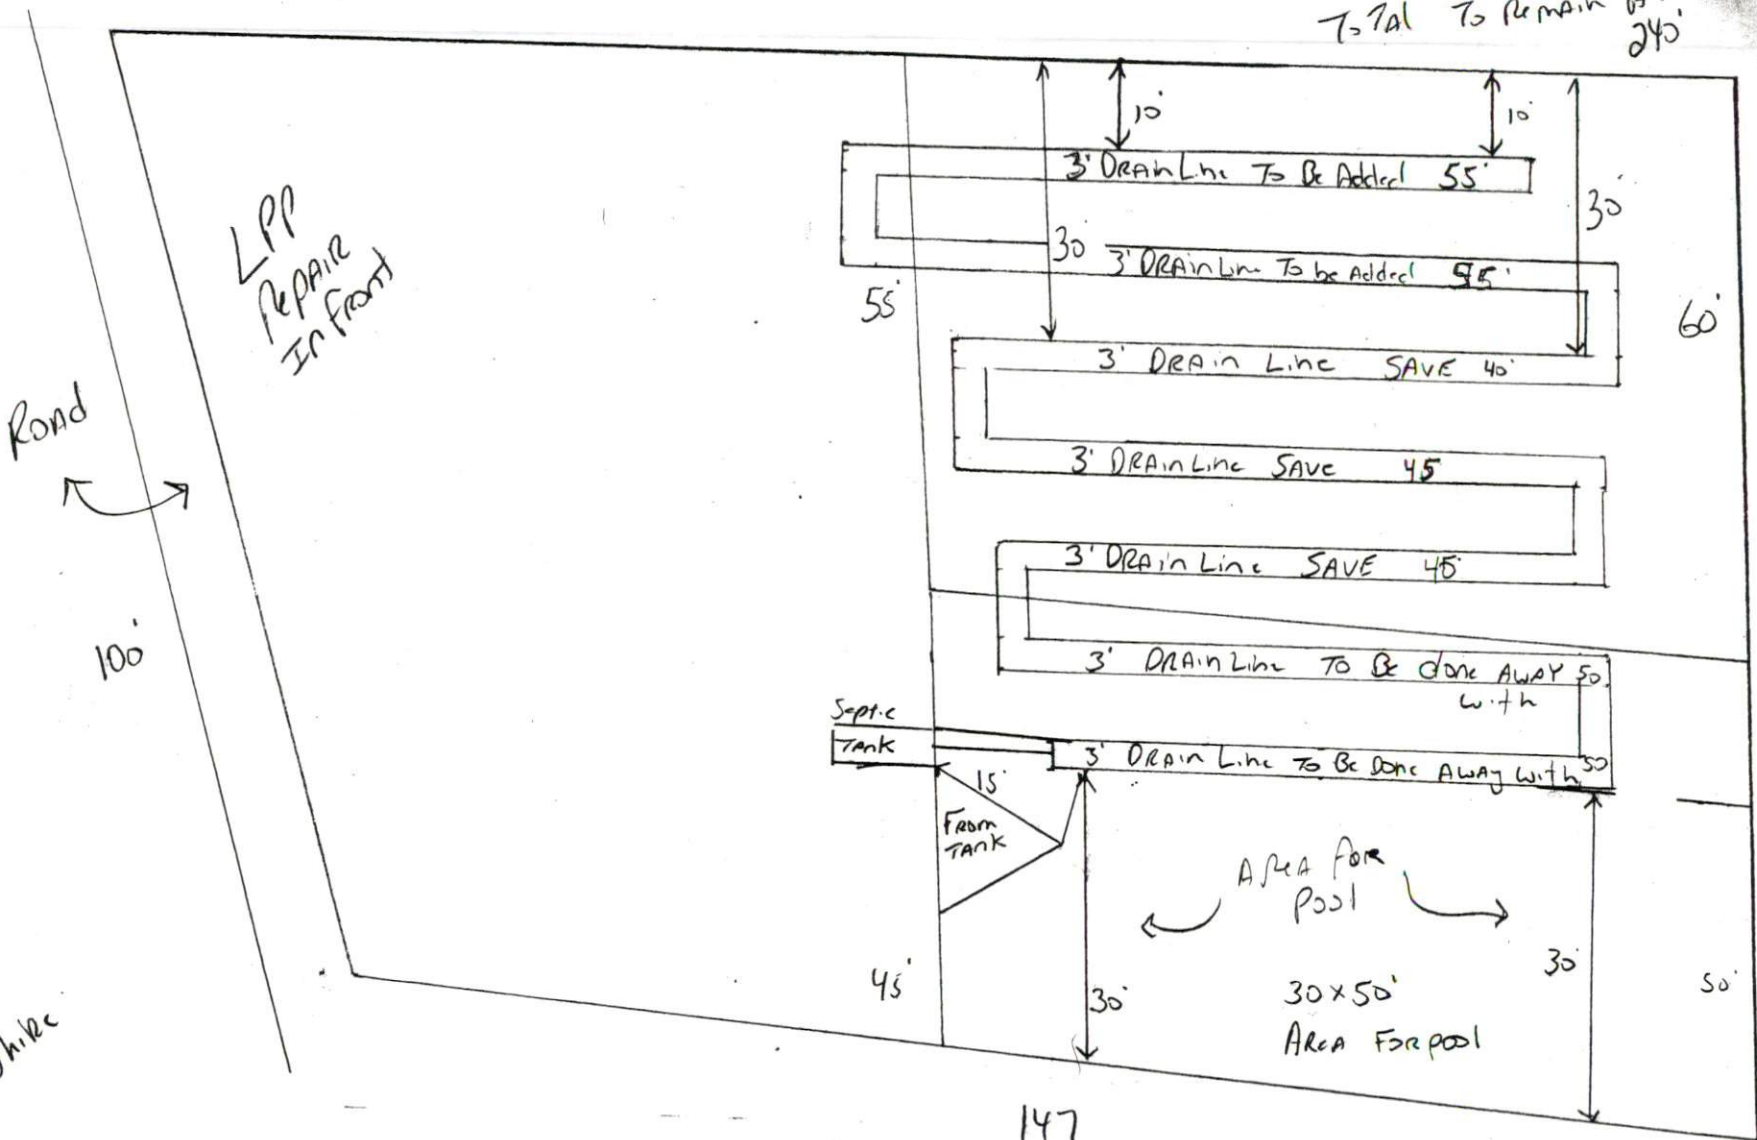 Total To Remain
240'
10'
10'
3' Drain Line To Be Added 55'
30'
30'
3' Drain Line To be Added 55'
LPP
Repair
In Front
55'
60'
3' Drain Line SAVE 40'
Road
3' Drain Line Save 45
3' Drain Line SAVE 45'
100'
3' Drain Line To Be done Away 50'
with
Septic
Tank
3' Drain Line To Be Done Away with 50
15'
From
Tank
Area For
Pool
45'
30'
30'
50'
30x50'
Area For pool
147